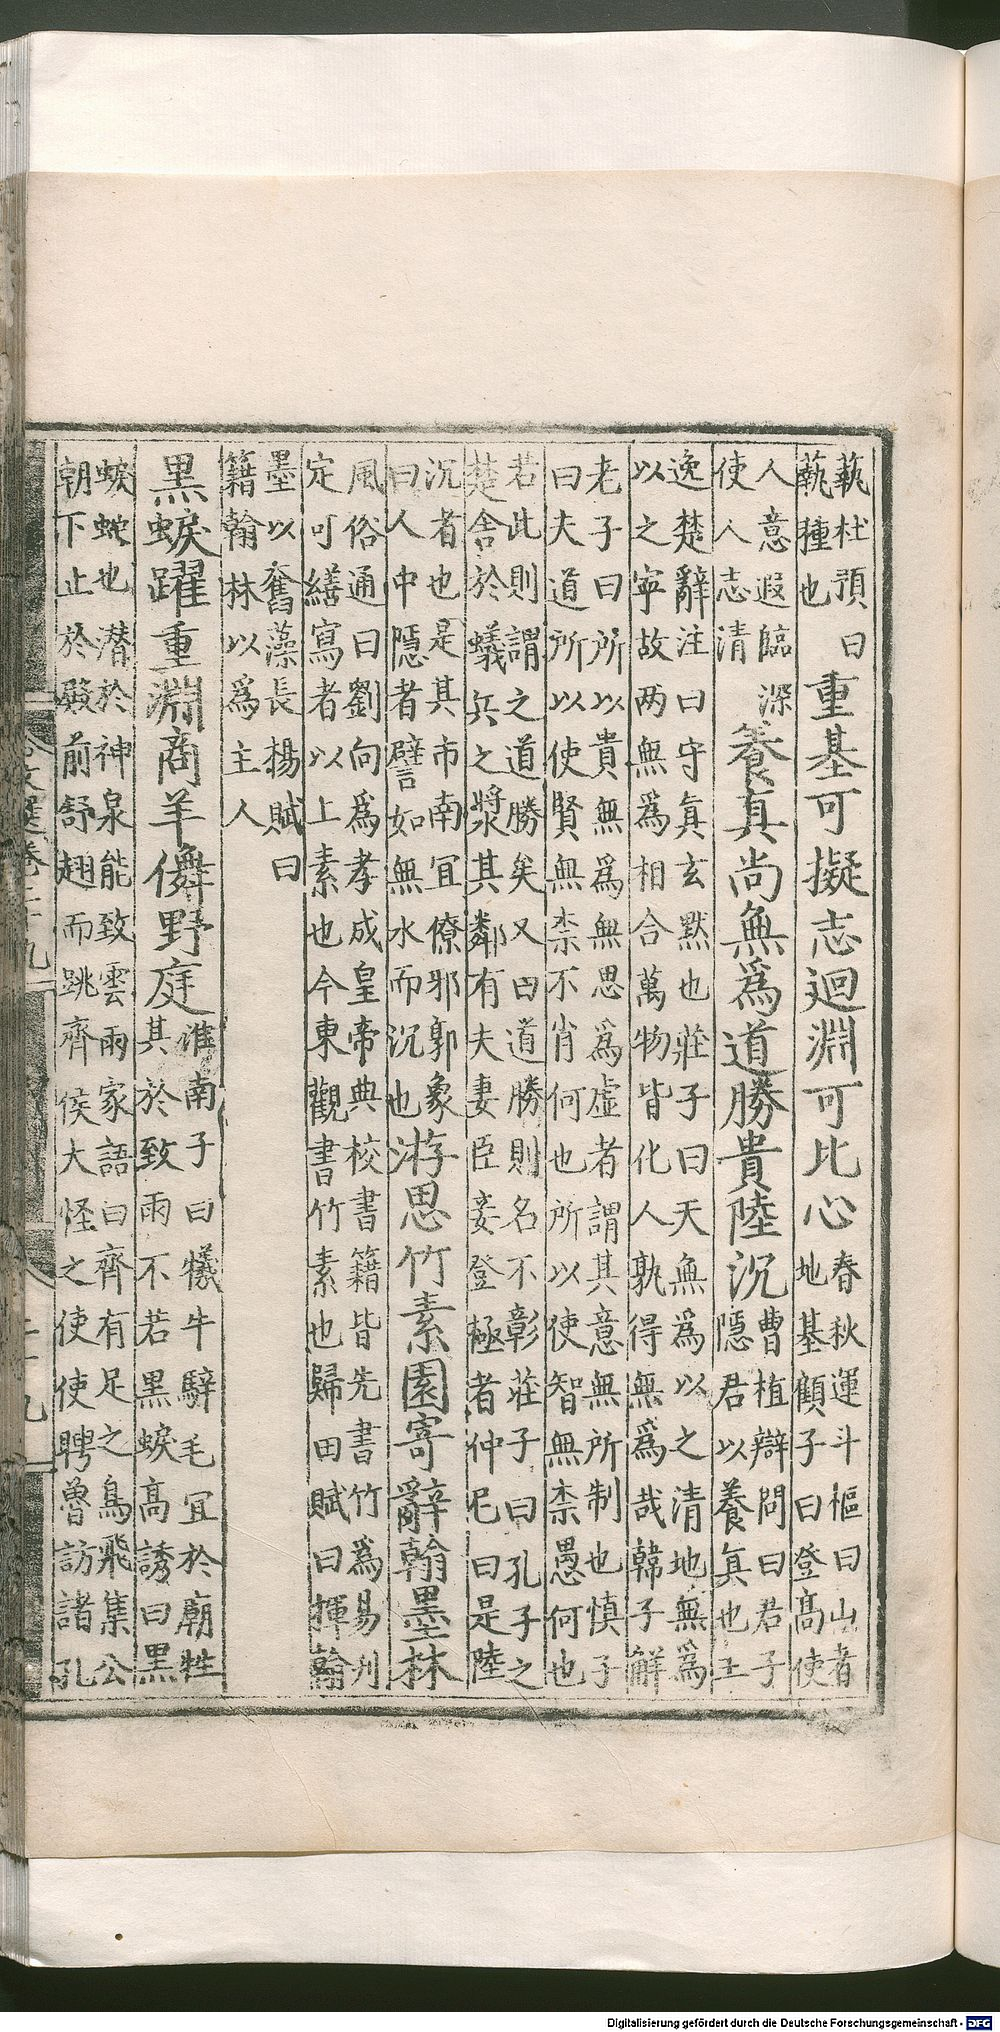 蓺杜預曰
蓺種也
重基可擬志迴淵可比心
春秋運斗樞曰山者
地基顧子曰登高使
人意遐臨深
使人志清
養真尚無爲道勝貴陸沉
曹植辯問曰君子
隱居以養真也王
逸楚辭注曰守真玄默也莊子曰天無爲以之清地無爲
以之寧故两無爲相合萬物皆化人孰得無爲哉韓子解
老子曰所以貴無爲無思爲虛者謂其意無所制也慎子
曰夫道所以使賢無柰不肖何也所以使智無柰愚何也
若此則謂之道勝矣又曰道勝則名不彰莊子曰孔子之
楚舍於蟻丘之漿其鄰有夫妻臣妾登極者仲尼曰是陸
沉者也是其市南宜僚邪郭象
曰人中隱者譬如無水而沉也
游思竹素園寄辭翰墨林
風俗通曰劉向爲孝成皇帝典校書籍皆先書竹爲易刋
定可繕寫者以上素也今東觀書竹素也歸田賦曰揮翰
墨以奮藻長揚賦曰
籍翰林以爲主人
黒蜧躍重淵商羊儛野庭
淮南子曰犧牛騂毛宜於廟牲
其於致雨不若黒蜧高誘曰黒
蜧虵也潛於神泉能致雲雨家語曰齊有足之鳥飛集公
朝下止於殿前舒翅而跳齊侯大怪之使使聘魯訪諸孔
Digitalisierung gefördert durch die Deutsche Forschungsgemeinschaft - DFG